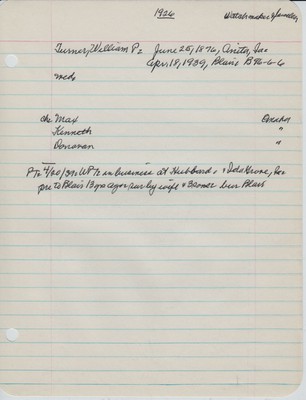 1926 Watchmaker & Jeweler
Turner, William P: June 25, 1876, Anita, Ioa
Apr. 18, 1939, Blair B46-6-6
wed:
ch: Max Omaha
Kenneth "
Donovan "
P To 4/20/39: WPT in business at Hubbard & Ida Grove, Ioa
pre to Blair 13 yrs ago sur by wife & 3 sons bur Blair